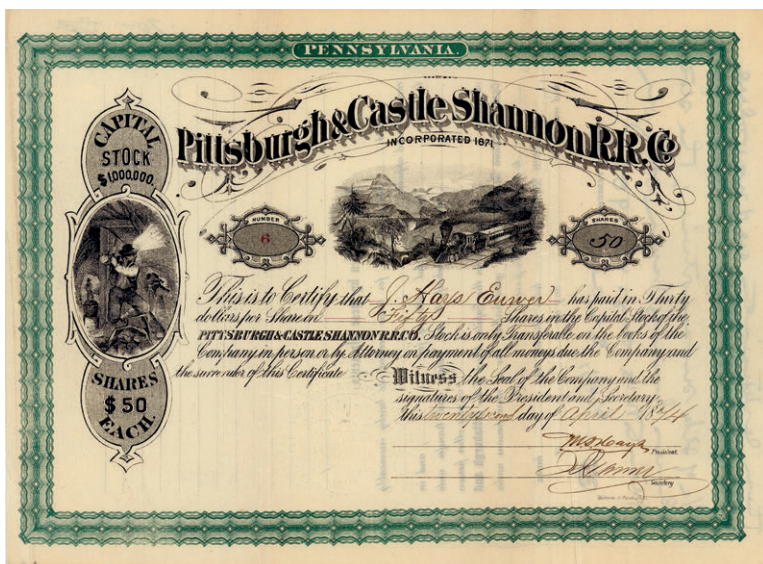 PENNSYLVANIA.
Pittsburgh & Castle Shannon R.R. Co
INCORPORATED 1871
CAPITAL
STOCK
$1,000,000.
NUMBER
6
SHARES
50
This is to Certify that J. Hays Eurwer has paid in Thirty
dollars per Share on Fifty Shares in the Capital Stock of the
PITTSBURGH & CASTLE SHANNON R.R. CO. Stock is only Transferable on the books of the
Company in person or by Attorney on payment of all moneys due the Company and
the surrender of this Certificate
Witness the Seal of the Company and the
signatures of the President and Secretary
this twenty second day of April 1874
President
Secretary
SHARES
$50
EACH.